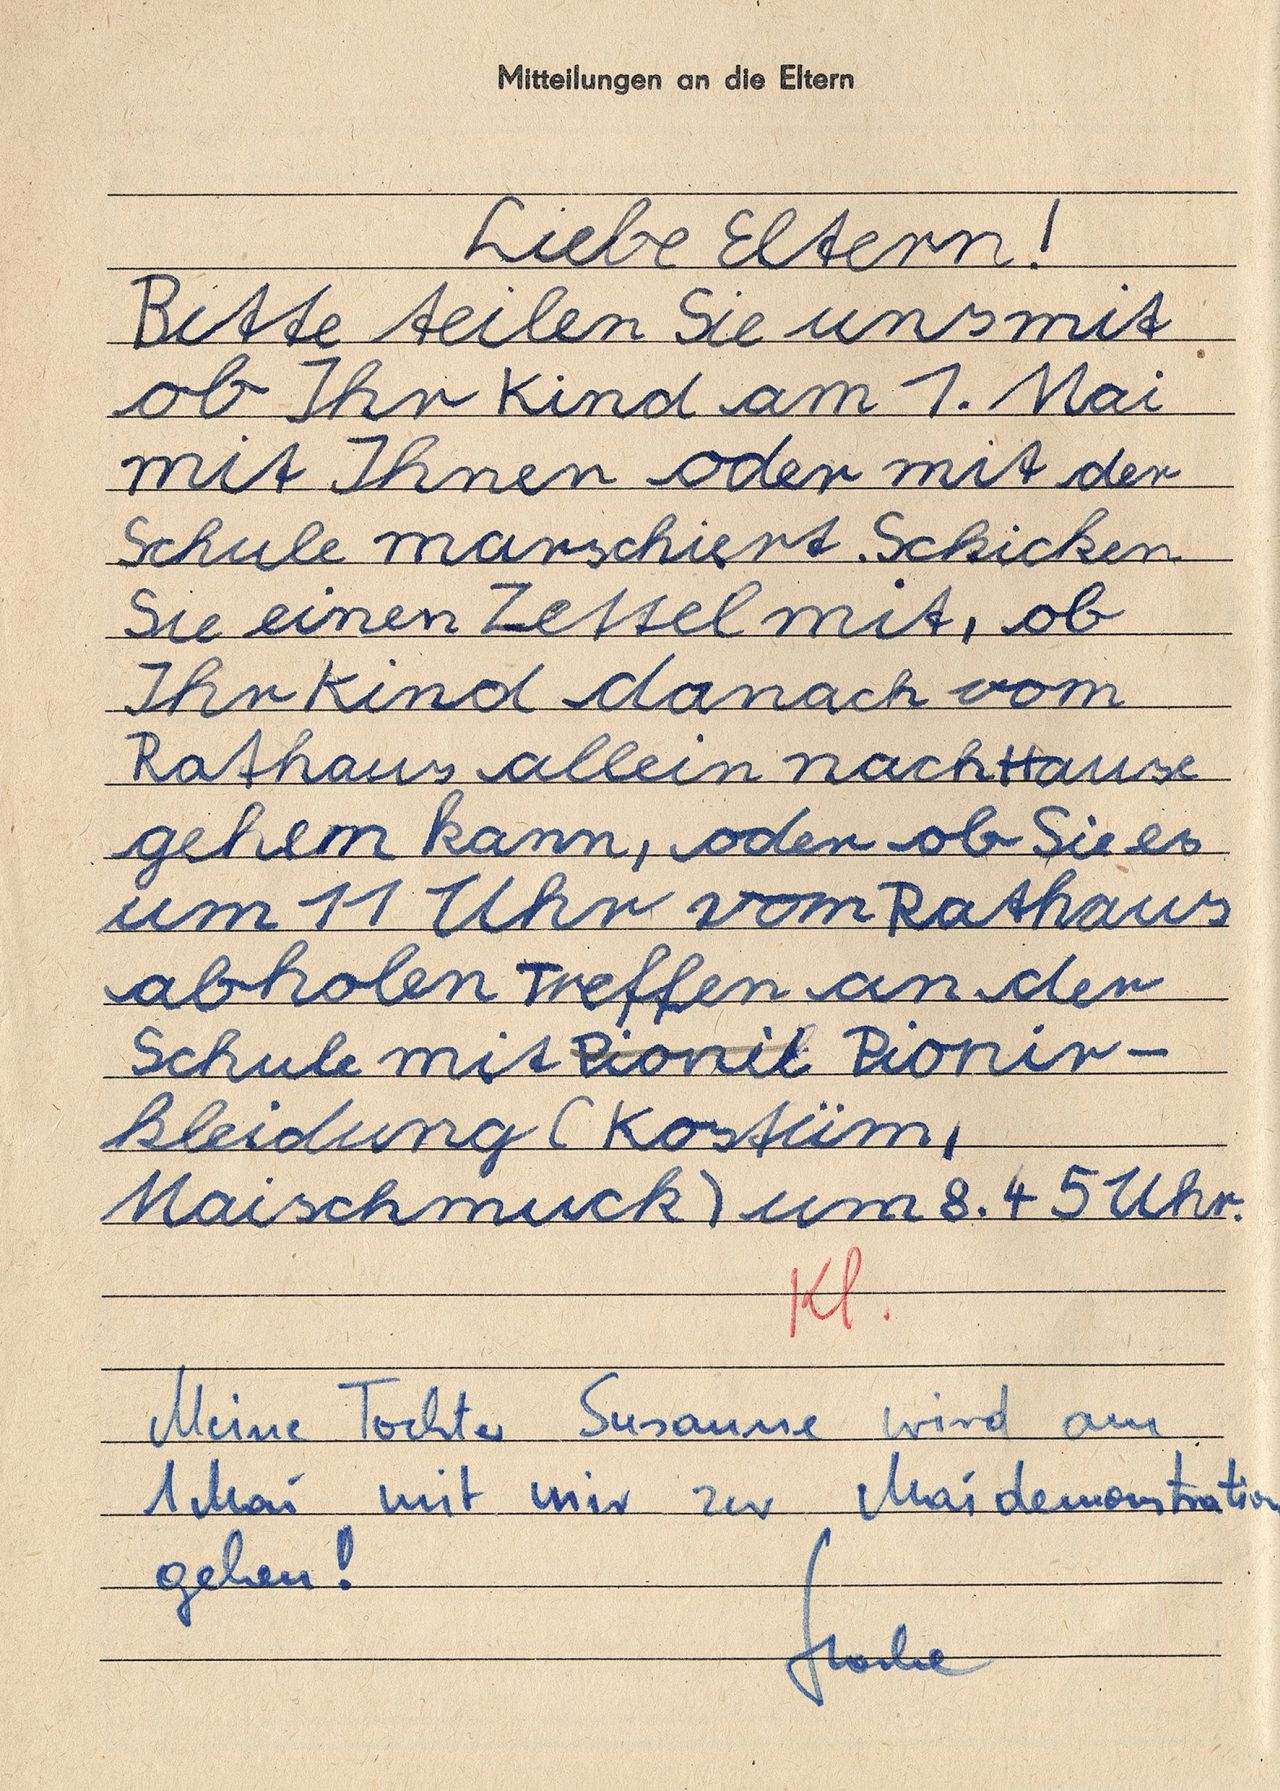 Mitteilungen an die Eltern
Liebe Eltern!
Bitte teilen Sie uns mit
ob Ihr Kind am 1. Mai
mit Ihnen oder mit der
Schule marschiert. Schicken
Sie einen Zettel mit, ob
Ihr Kind danach vom
Rathaus allein nach Hause
gehem kann, oder ob Sie es
um 11 Uhr vom Rathaus
abholen Treffen an der
Schule mit Pionil Pionir-
kleidung (Kostüm,
Maischmuck) um 8.45 Uhr.
Kl.
Meine Tochter Susanne wird am
1 Mai mit mir zur Maidemonstration
gehen!